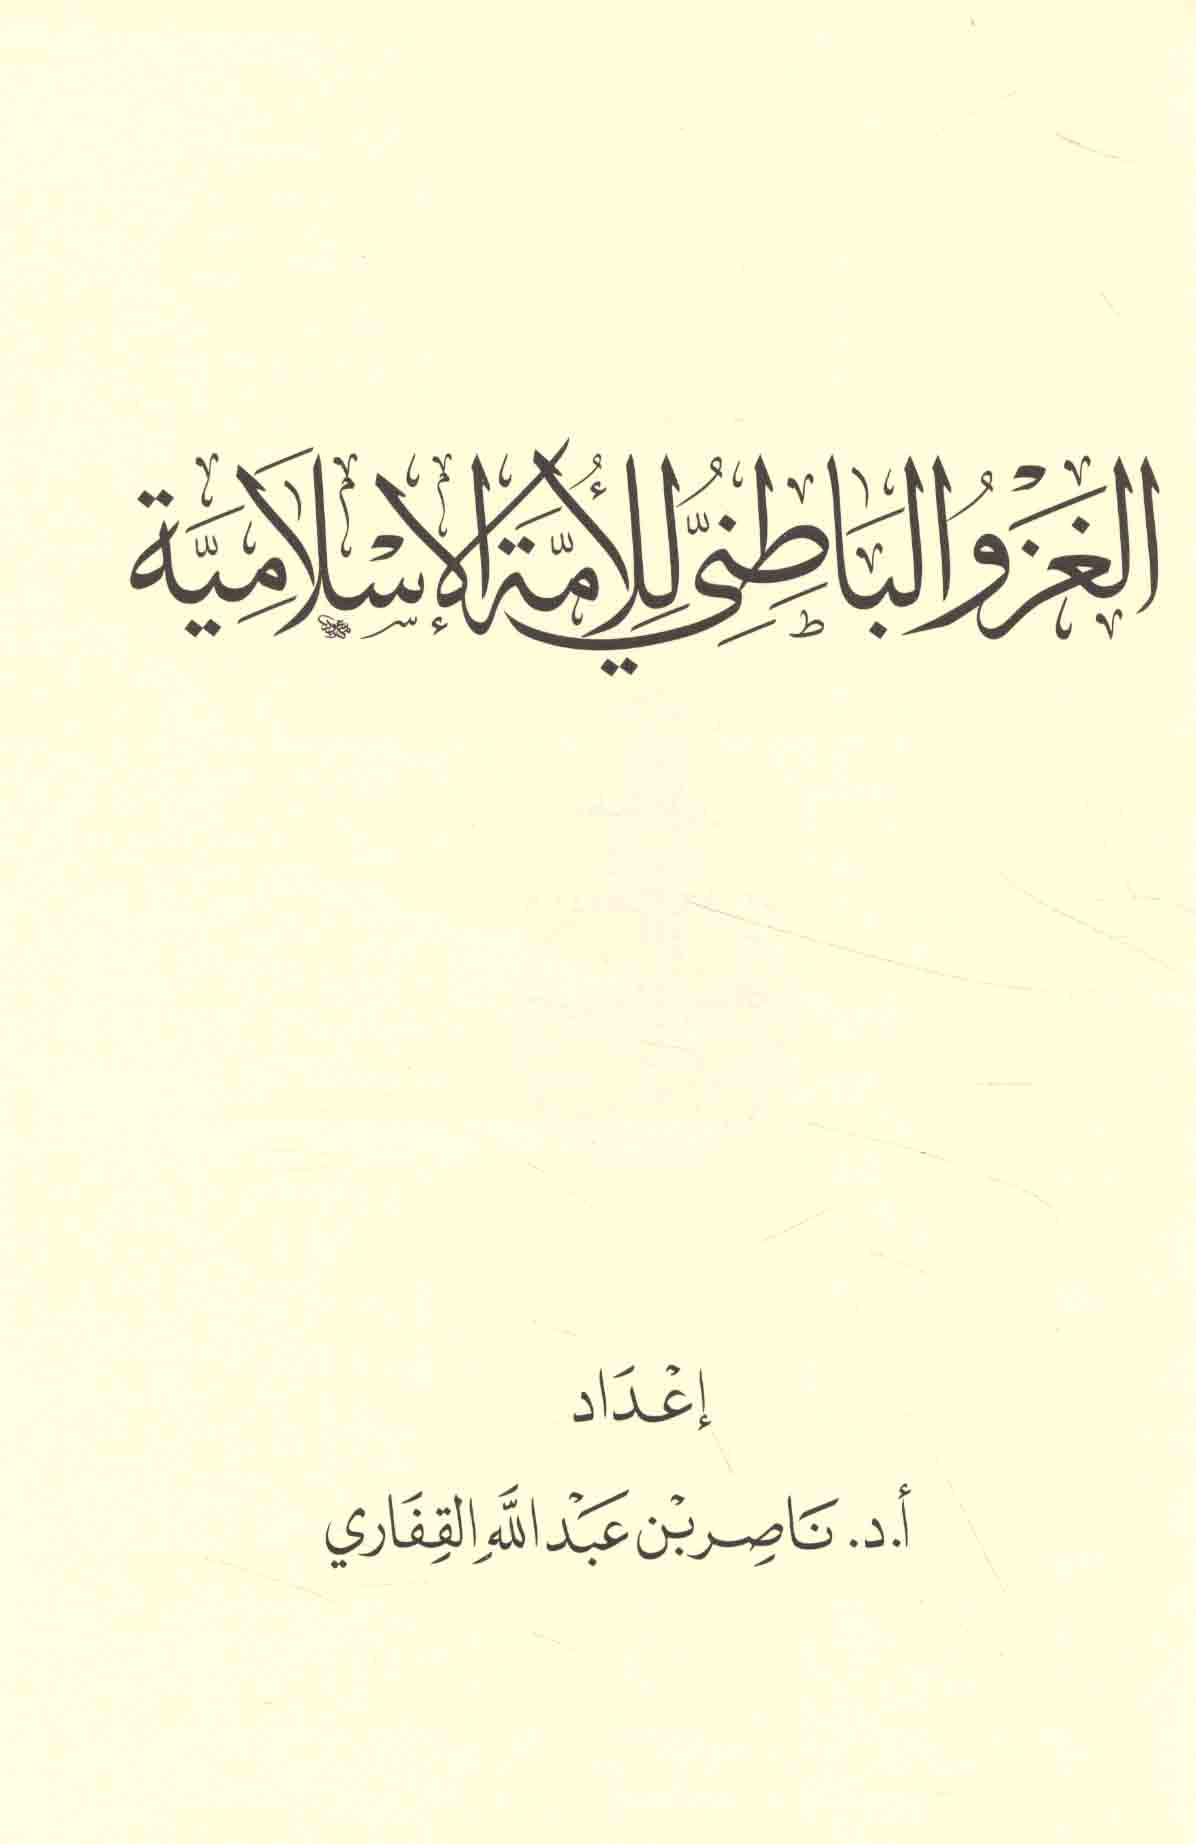 الغَزْوُ البَاطِنيُّ لِلأُمَّة الإِسْلَامِيَّة
إعْدَاد
أ.د. نَاصِر بْن عَبْد اللَّهِ القِفَاري